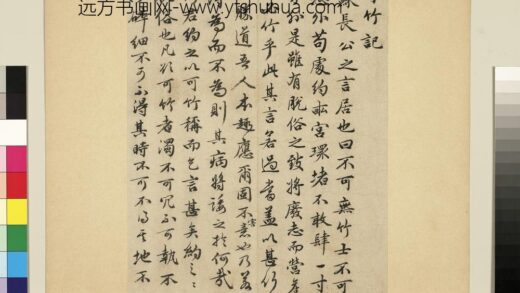 远方书画网-www.yfshuhua.com
竹記
長公之言居也曰不可無竹士不可
苟處約畝宮環堵不敢肆一寸
是雖有脫俗之致將廢志而營
竹乎此其言若過當蓋以甚行
勝道吾人本趣應爾固不意也乃若
為而不為則其病將諉之於何哉
若約之以可竹稱而乞言甚矣約之之
俗也凡欲可竹者濁不可冗不可執不
碎細不可不得其時不可不得其地不